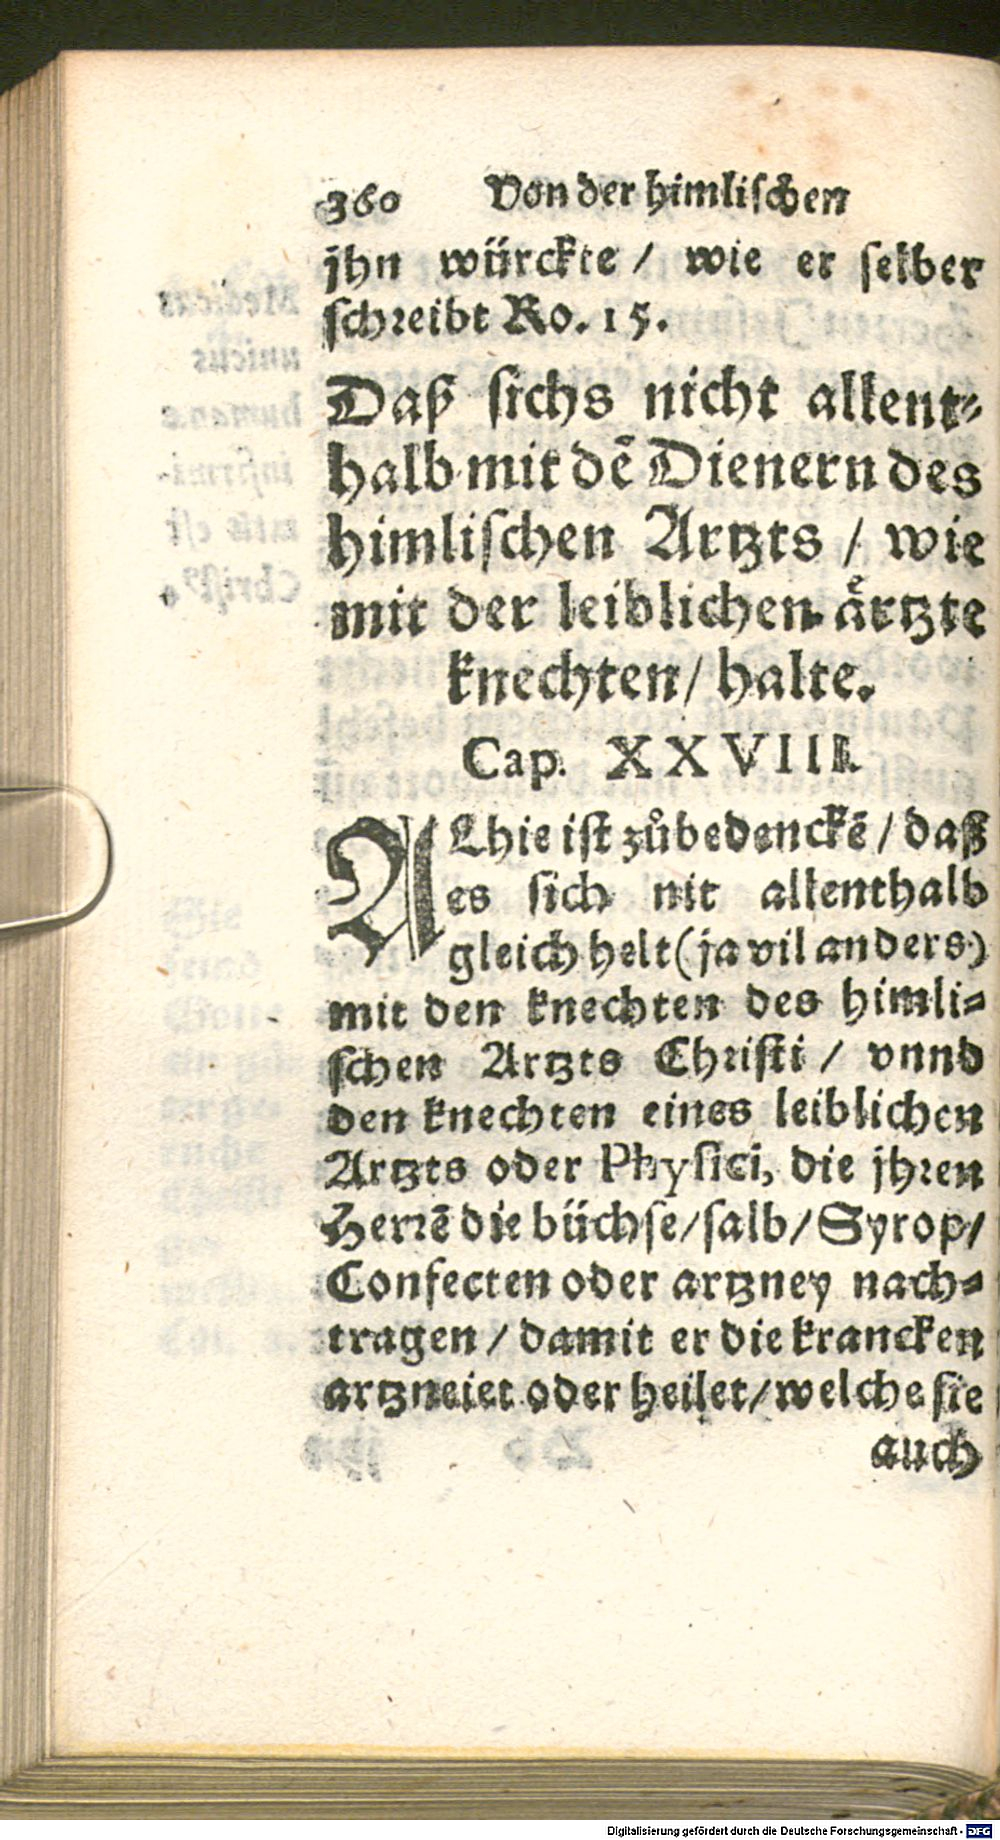 360 Von der himlischen
jhn würckte / wie er selber
schreibt Ro. 15.
Daß sichs nicht allent⸗
halb mit dē Dienern des
himlischen Artzts / wie
mit der leiblichen aͤrtzte
knechten / halte.
Cap. XXVIII.
ALhie ist zůbedenckē / daß
es sich nit allenthalb
gleich helt (ja vil anders)
mit den knechten des himli⸗
schen Artzts Christi / vnnd
den knechten eines leiblichen
Artzts oder Physici, die jhren
Herrē die büchse / salb / Syrop /
Confecten oder artzney nach⸗
tragen / damit er die krancken
artzneiet oder heilet / welche sie
auch
Digitalisierung gefördert durch die Deutsche Forschungsgemeinschaft - DFG